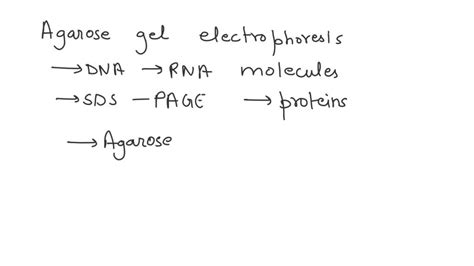 Agarose gel electrophoresis
→ DNA → RNA molecules
→ SDS - PAGE → proteins
→ Agarose